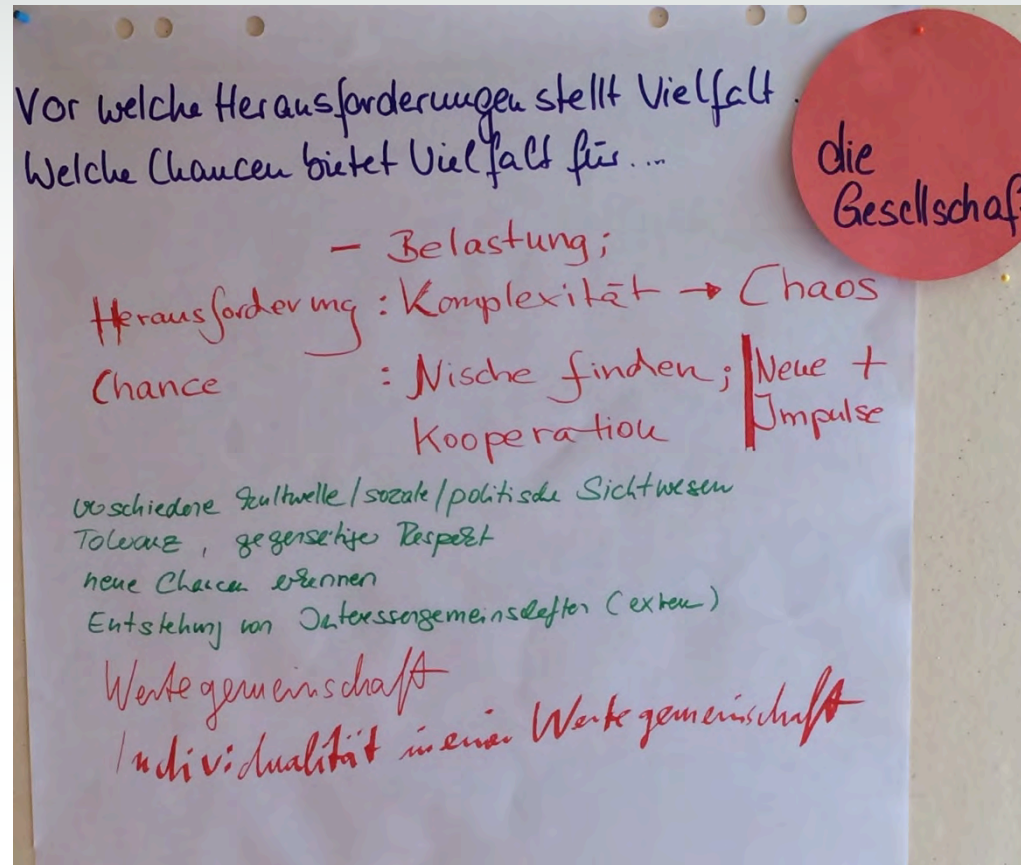 Vor welche Herausforderungen stellt Vielfalt .
Welche Chancen bietet Vielfalt für...
die
Gesellschaf
- Belastung;
Herausforderung : Komplexität → Chaos
Chance : Nische finden; Neue +
Kooperation Impulse
verschiedene kulturelle/soziale/politische Sichtwesen
Toleranz, gegenseitiger Respekt
neue Chancen erkennen
Entstehung von Interessengemeinschaften (extrem)
Wertegemeinschaft
Individualität in einer Wertegemeinschaft